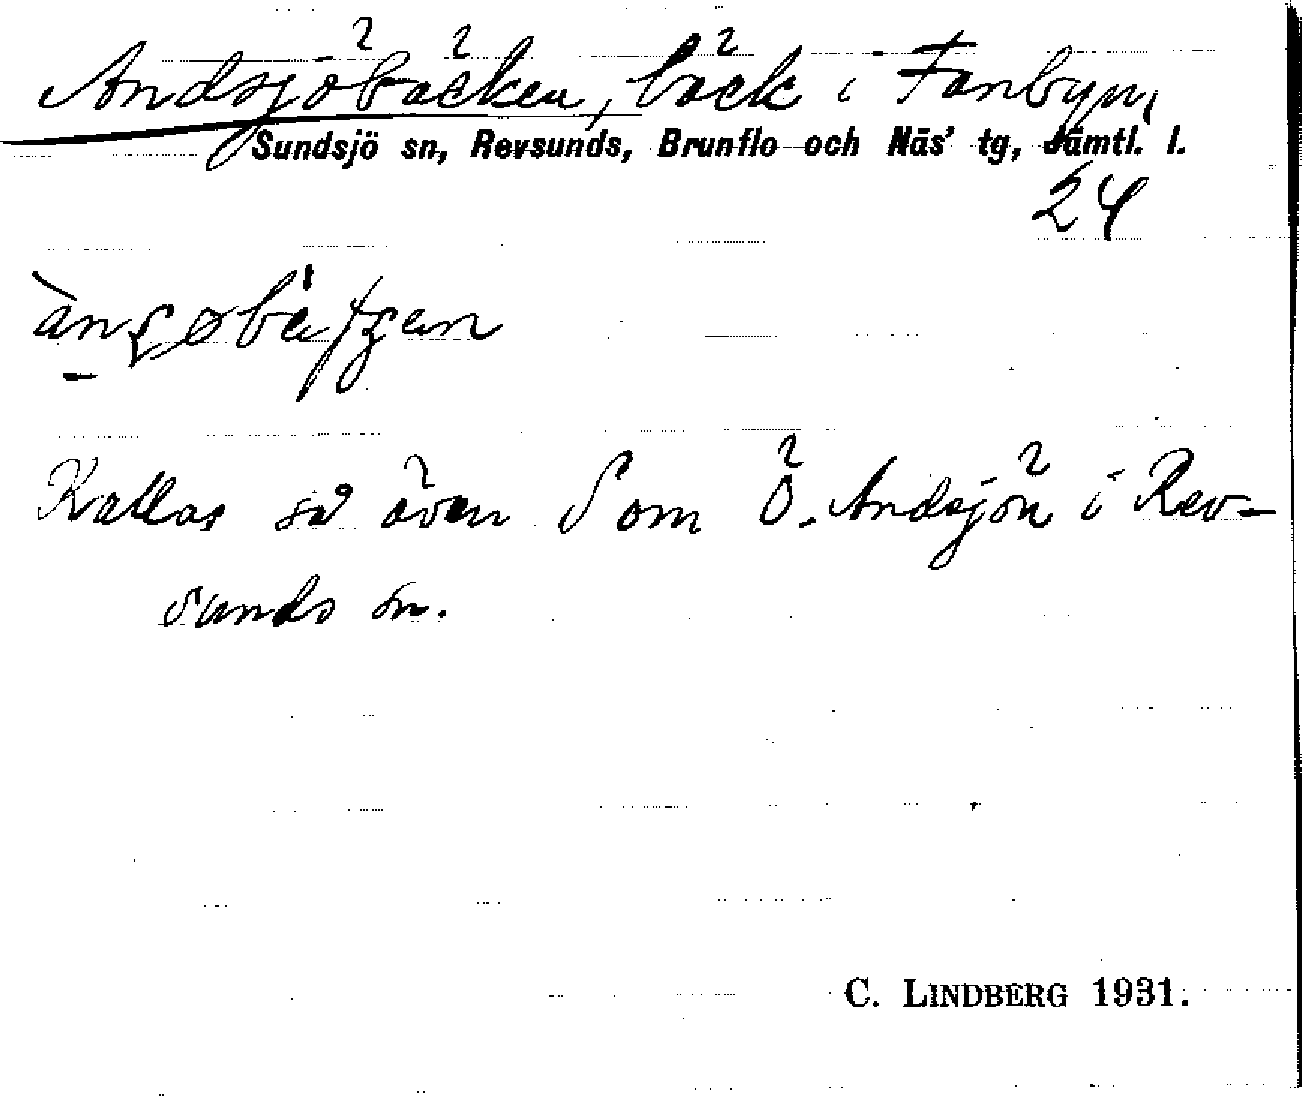 Andsjöbäcken, bäck i Fanbyn,
Sundsjö sn, Revsunds, Brunflo och Näs' tg, Jämtl. l.
24
Kallas så även som Ö. Andsjön i Rev-
sunds sn.
C. LINDBERG 1931.